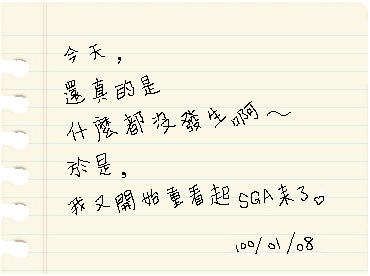 今天，
還真的是
什麼都沒發生啊～
於是，
我又開始重看起SGA来了♡
100/01/08